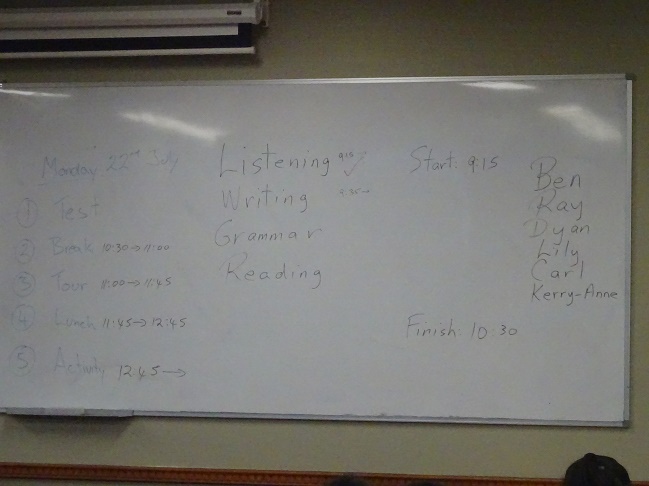 Monday 22nd July
① Test
② Break 10:30→11:00
③ Tour 11:00→11:45
④ Lunch 11:45→12:45
⑤ Activity 12:45→
Listening
Writing
Grammar
Reading
Start: 9:15
Finish: 10:30
Ben
Ray
Dyan
Lily
Carl
Kerry-Anne